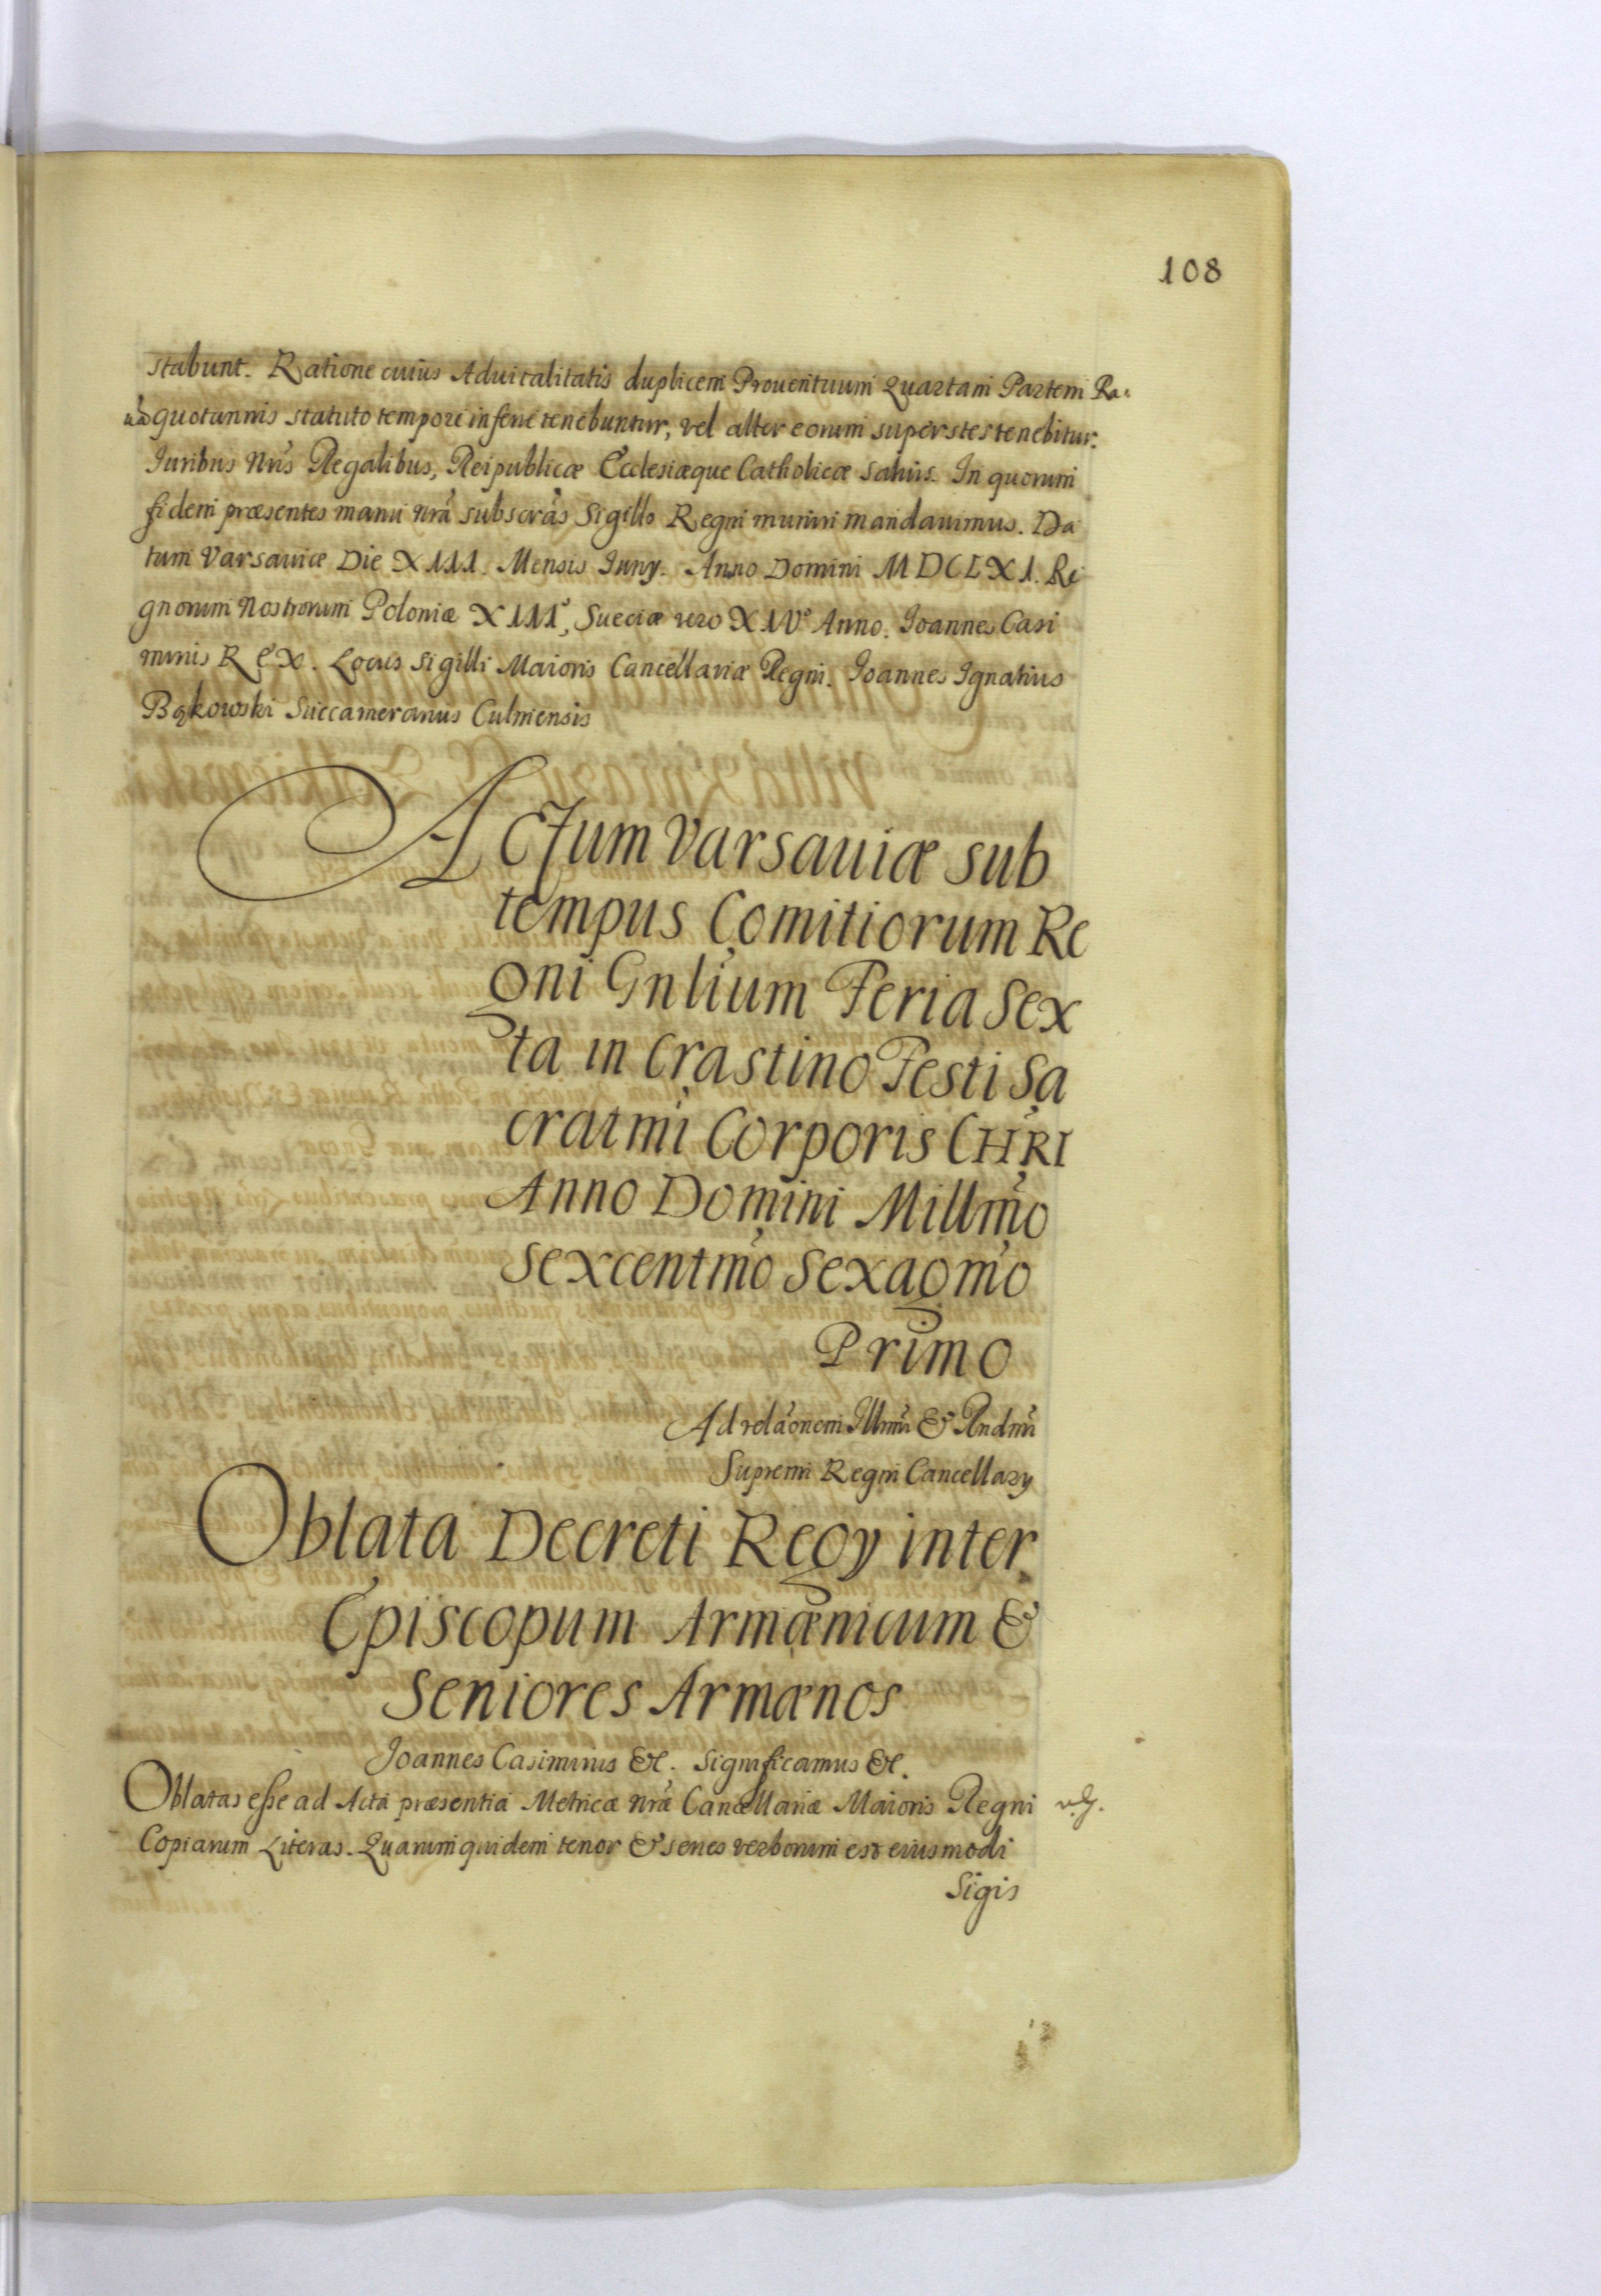 108
stabunt. Ratione cuius Aduitalitatis duplicem Prouentuum Quartam Partem Ra
uã quotannis statuto tempore inferre tenebuntur, vel alter eorum superstes tenebitur.
Iuribus Nr̃is Regalibus, Reipublicæ Ecclesiæque Catholicæ saluis. In quorum
fidem præsentes manu nr̃a subscr̃as Sigillo Regni muniri mandauimus. Da
tum Varsauiæ Die XIII. Mensis Iuny. Anno Domini MDCLXI. Re
gnorum Nostrorum Poloniæ XIIIº, Sueciæ vero XIVº Anno. Ioannes Casi
mirus REX. Locus Sigilli Maioris Cancellariæ Regni. Ioannes Ignatius
Bąkowski Succamerarius Culmensis
Actum Varsauiæ sub
tempus Comitiorum Re
gni Gnlium Feria Sex
ta in Crastino Festi Sa
cratmi Corporis CHRI
Anno Domini Millmo
Sexcentmo Sexagmo
Primo
Ad relãonem Illmi & Rndmi
Supremi Regni Cancellary
Oblata Decreti Regy inter
Episcopum Armænicum &
Seniores Armænos
Joannes Casimirus &c. Significamus &c.
Oblatas esse ad Acta præsentia Metricæ nr̃æ Cancellariæ Maioris Regni
Copiarum Literas. Quarum quidem tenor & series verborum est eiusmodi
Sigis